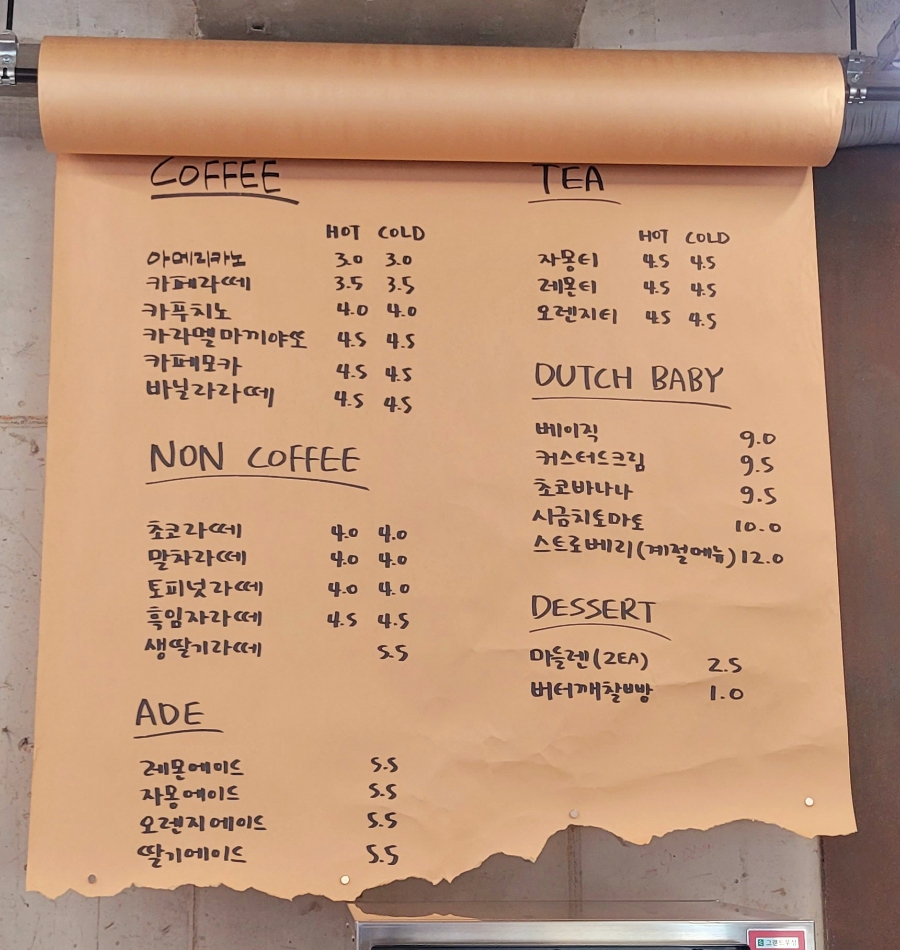 COFFEE
HOT COLD
아메리카노 3.0 3.0
카페라떼 3.5 3.5
카푸치노 4.0 4.0
카라멜마끼야또 4.5 4.5
카페모카 4.5 4.5
바닐라라떼 4.5 4.5
NON COFFEE
초코라떼 4.0 4.0
말차라떼 4.0 4.0
토피넛라떼 4.0 4.0
흑임자라떼 4.5 4.5
생딸기라떼 5.5
ADE
레몬에이드 5.5
자몽에이드 5.5
오렌지에이드 5.5
딸기에이드 5.5
TEA
HOT COLD
자몽티 4.5 4.5
레몬티 4.5 4.5
오렌지티 4.5 4.5
DUTCH BABY
베이직 9.0
커스터드크림 9.5
초코바나나 9.5
시금치토마토 10.0
스트로베리(계절메뉴) 12.0
DESSERT
마들렌(2EA) 2.5
버터깨찰빵 1.0